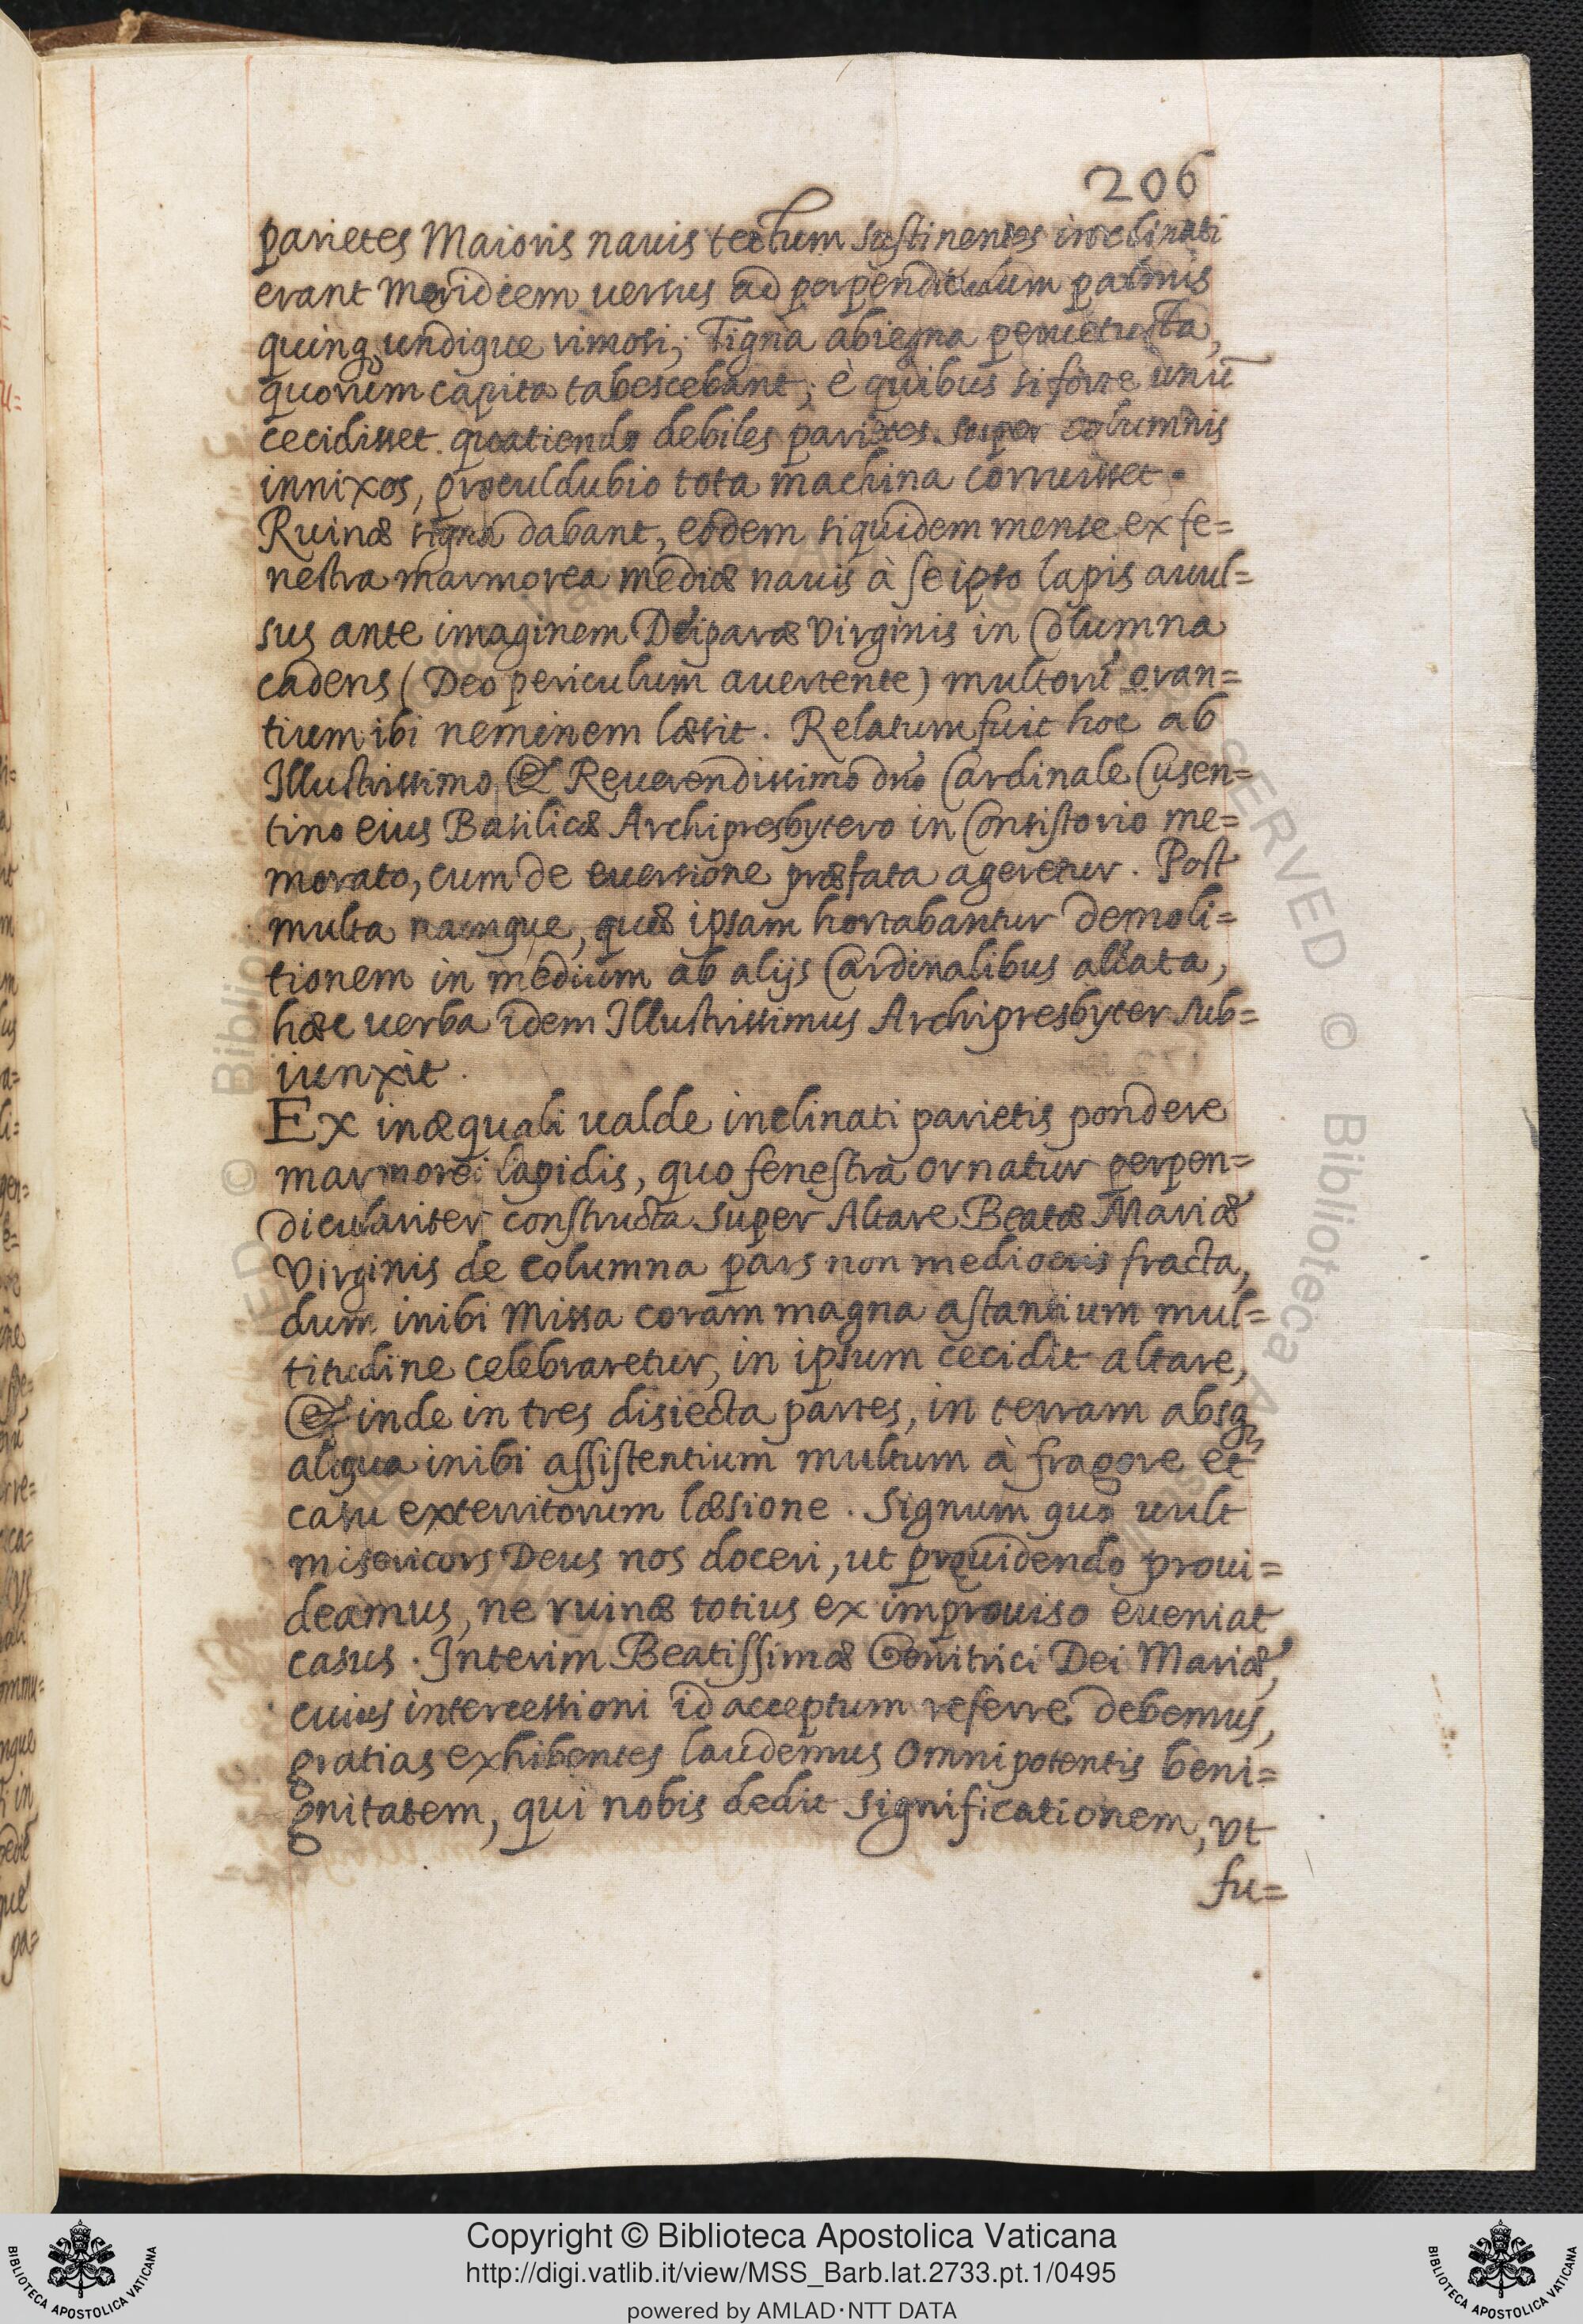 206
parietes Maioris nauis tectum sustinentes inclinati
erant meridiem uersus ad perpendiculum palmis
quinq; undique rimosi; Tigna abiegna peruetusta,
quorum capita tabescebant; è quibus si forte unũ
cecidisset quatiendo debiles parietes super columnis
innixos, proculdubio tota machina corruisset.
Ruinæ signa dabant, eodem siquidem mense ex fe=
nestra marmorea mediæ nauis à seipso lapis auul=
sus ante imaginem Deiparæ Virginis in Columna
cadens (Deo periculum auertente) multorũ oran=
tium ibi neminem læsit. Relatum fuit hoc ab
Illustrissimo & Reuerendissimo dño Cardinale Cusen=
tino eius Basilicæ Archipresbytero in Consistorio me=
morato, cum de euersione præfata ageretur. Post
multa namque, quæ ipsam hortabantur demoli=
tionem in medium ab alijs Cardinalibus allata,
hæc uerba idem Illustrissimus Archipresbyter sub=
iunxit.
Ex inæquali ualde inclinati parietis pondere
marmorei lapidis, quo fenestra ornatur perpen=
diculariter constructa super Altare Beatæ Mariæ
Virginis de columna pars non mediocris fracta,
dum inibi Missa coram magna astantium mul=
titudine celebraretur, in ipsum cecidit altare,
& inde in tres disiecta partes, in terram absq;
aliqua inibi assistentium multum à fragore et
casu exterritorum læsione. Signum quo uult
misericors Deus nos doceri, ut pręuidendo proui=
deamus, ne ruinæ totius ex improuiso eueniat
casus. Interim Beatissimæ Genitrici Dei Mariæ,
cuius intercessioni id acceptum referre debemus,
gratias exhibentes laudemus Omnipotentis beni=
gnitatem, qui nobis dedit significationem, Vt
fu=
Copyright © Biblioteca Apostolica Vaticana
http://digi.vatlib.it/view/MSS_Barb.lat.2733.pt.1/0495
powered by AMLAD·NTT DATA
BIBLIOTECA APOSTOLICA VATICANA
BIBLIOTECA APOSTOLICA VATICANA